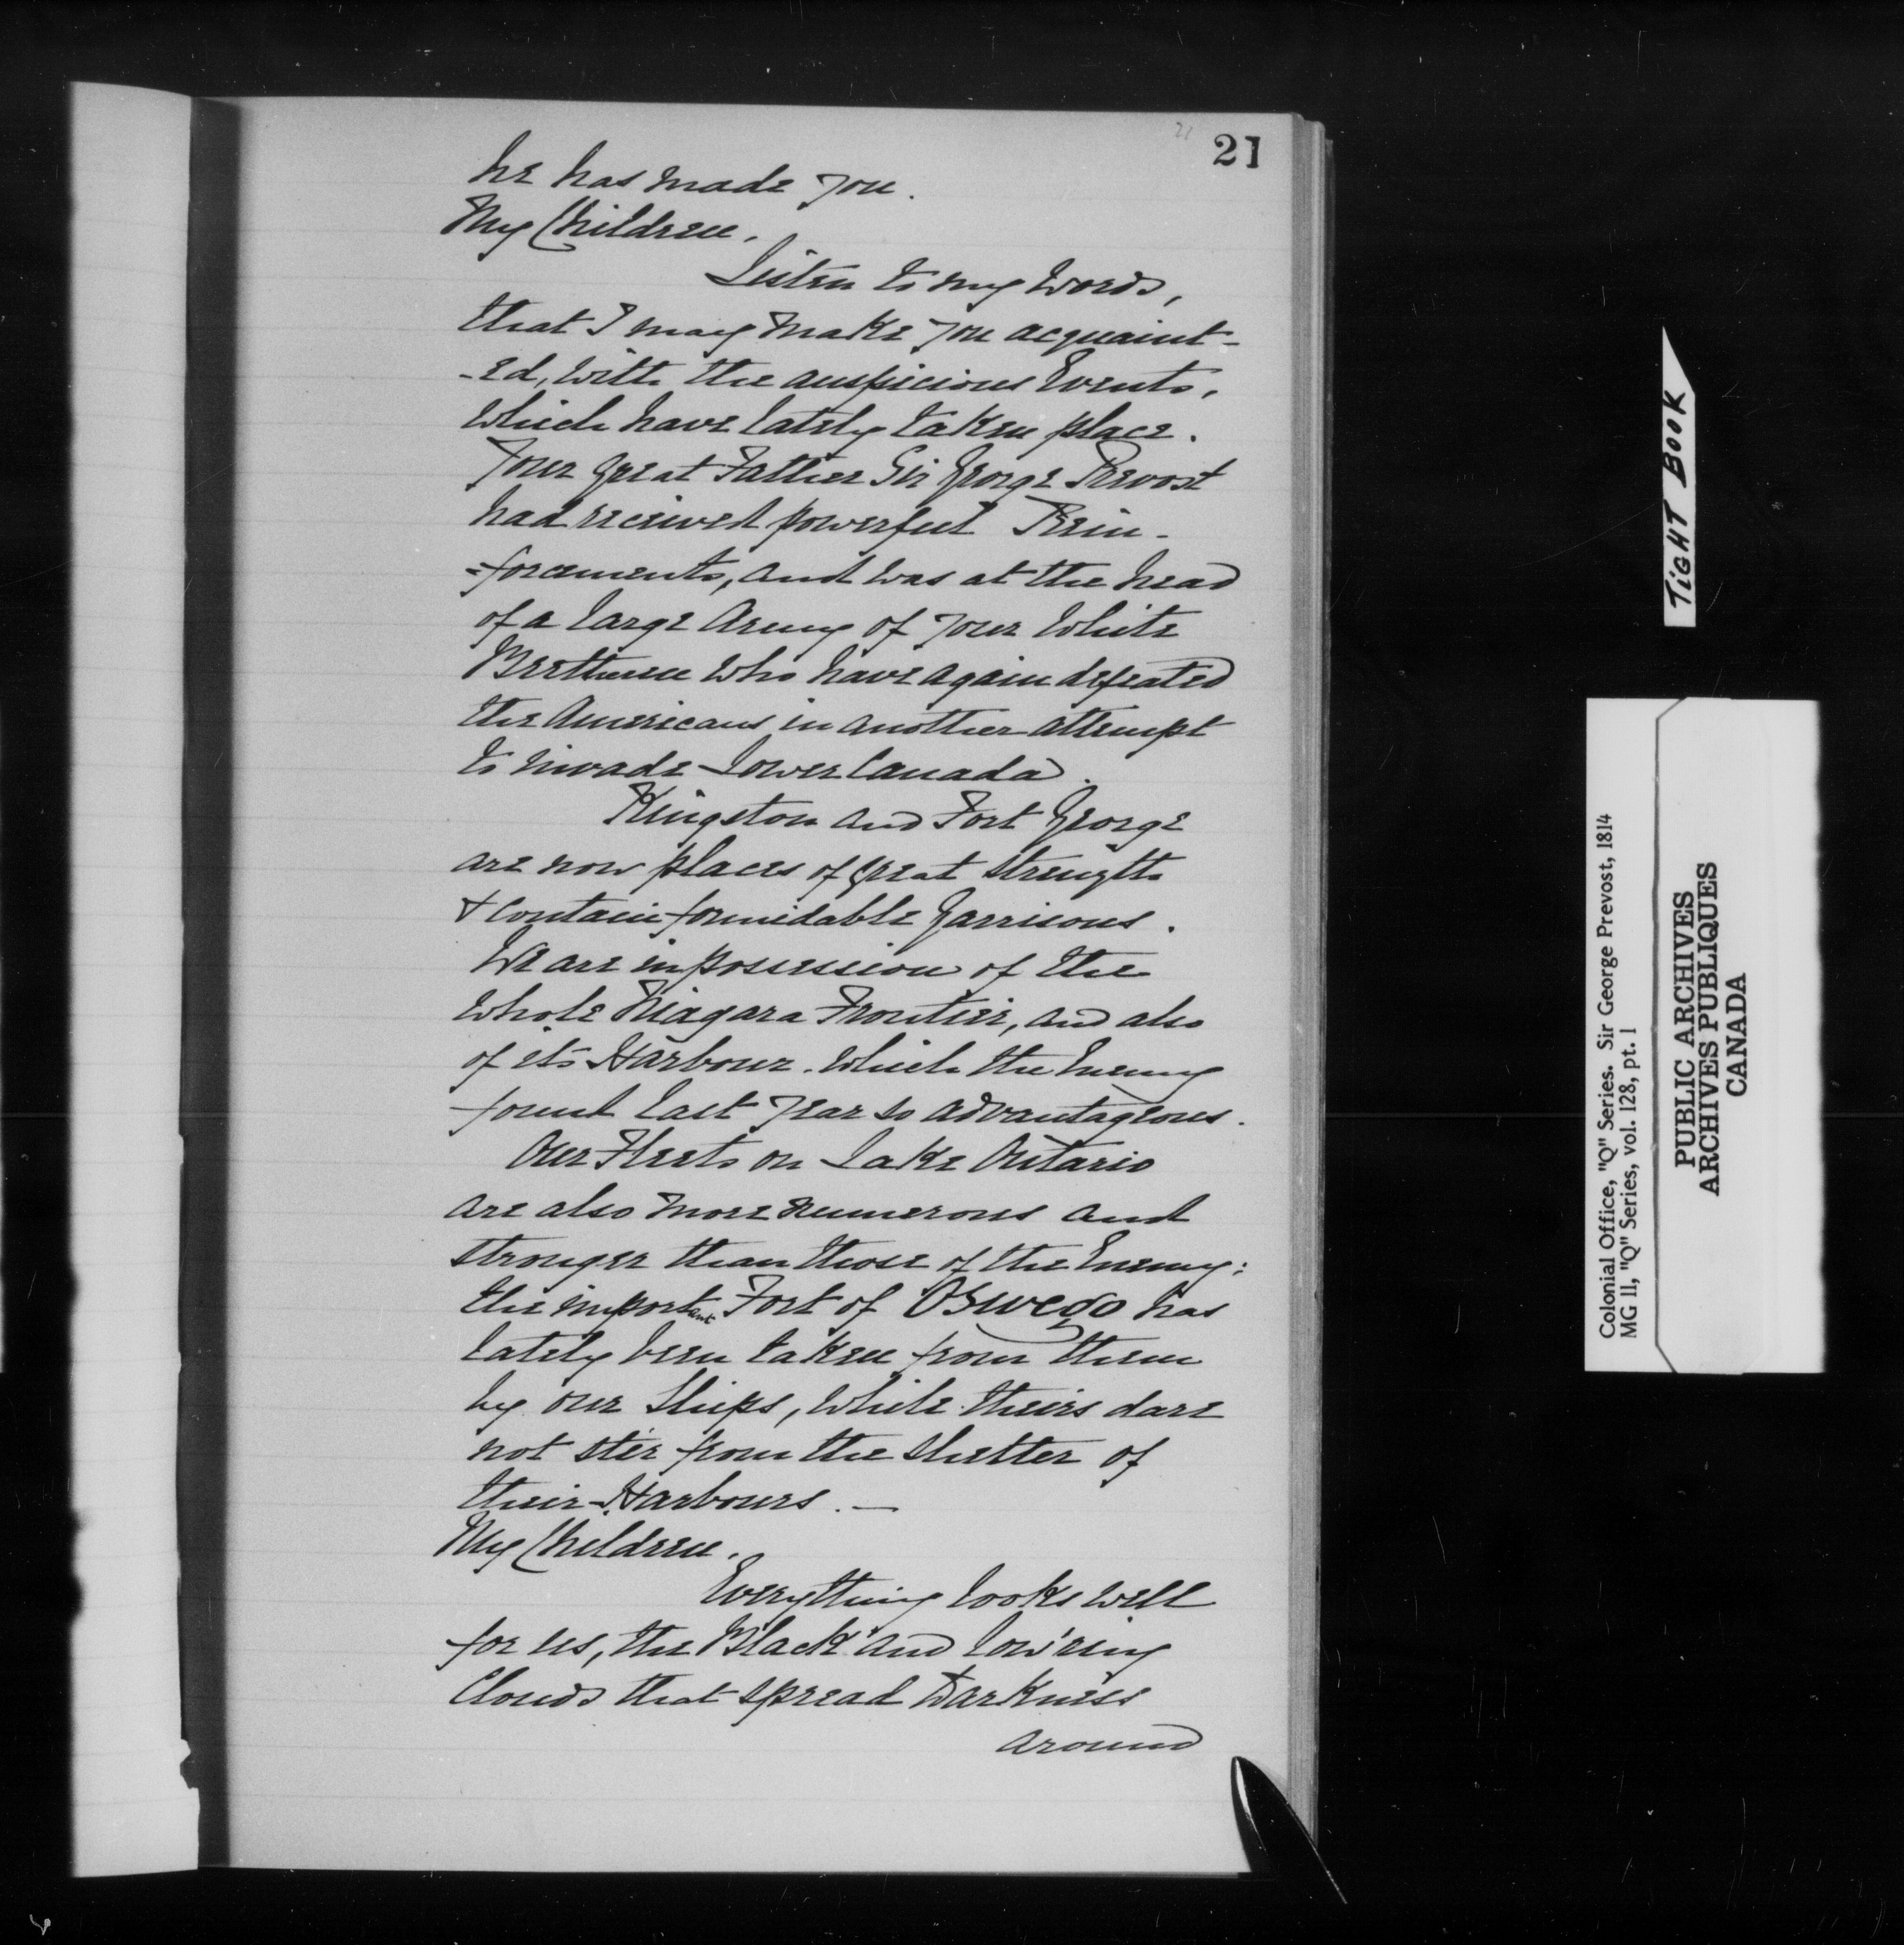 21
21
he has made you.
My Children.
Listen to my words,
that I may make you acquaint-
-ed, with the auspicious Events,
which have lately taken place.
Your great Father Sir George Prevost
had received powerful Rein-
=forcements, and was at the head
of a large Army of your White
Brethren who have again defeated
the Americans in another attempt
to invade Lower Canada.
Kingston and Fort George
are now places of great strength
& contain formidable Garrisons.
We are in possession of the
whole Niagara Frontier, and also
of it's Harbour. which the Enemy
found last year so advantageous.
Our Fleets on Lake Ontario
are also more numerous and
stronger than those of the Enemy:
the important Fort of Oswego has
lately been taken from them
by our Ships, while theirs dare
not stir from the shelter of
their Harbours. —
My Children.
Everything looks well
for us, the Black and low'ring
Clouds that spread Darkness
around
TIGHT BOOK
Colonial Office, "Q" Series. Sir George Prevost, 1814
MG 11, "Q" Series, vol. 128, pt. 1
PUBLIC ARCHIVES
ARCHIVES PUBLIQUES
CANADA